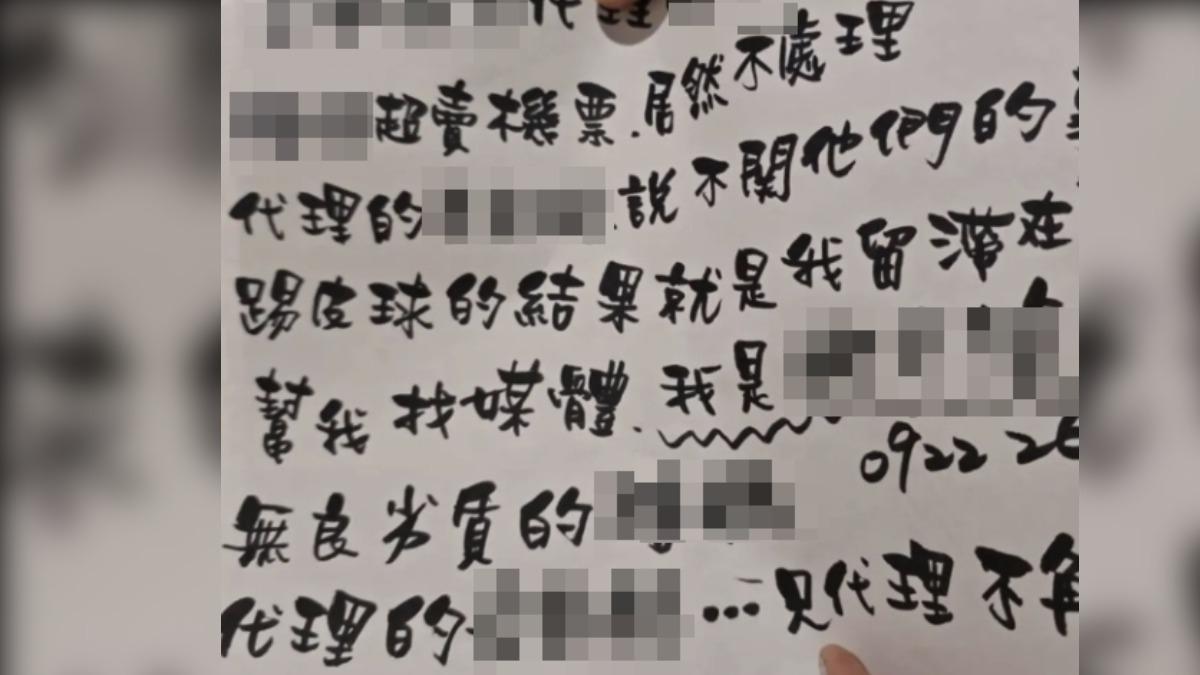 代理
超賣機票.居然不處理
代理的 .說不關他們的
踢皮球的結果就是我留滯在
幫我找媒體.我是
0922 26
無良劣質的
代理的 …只代理不